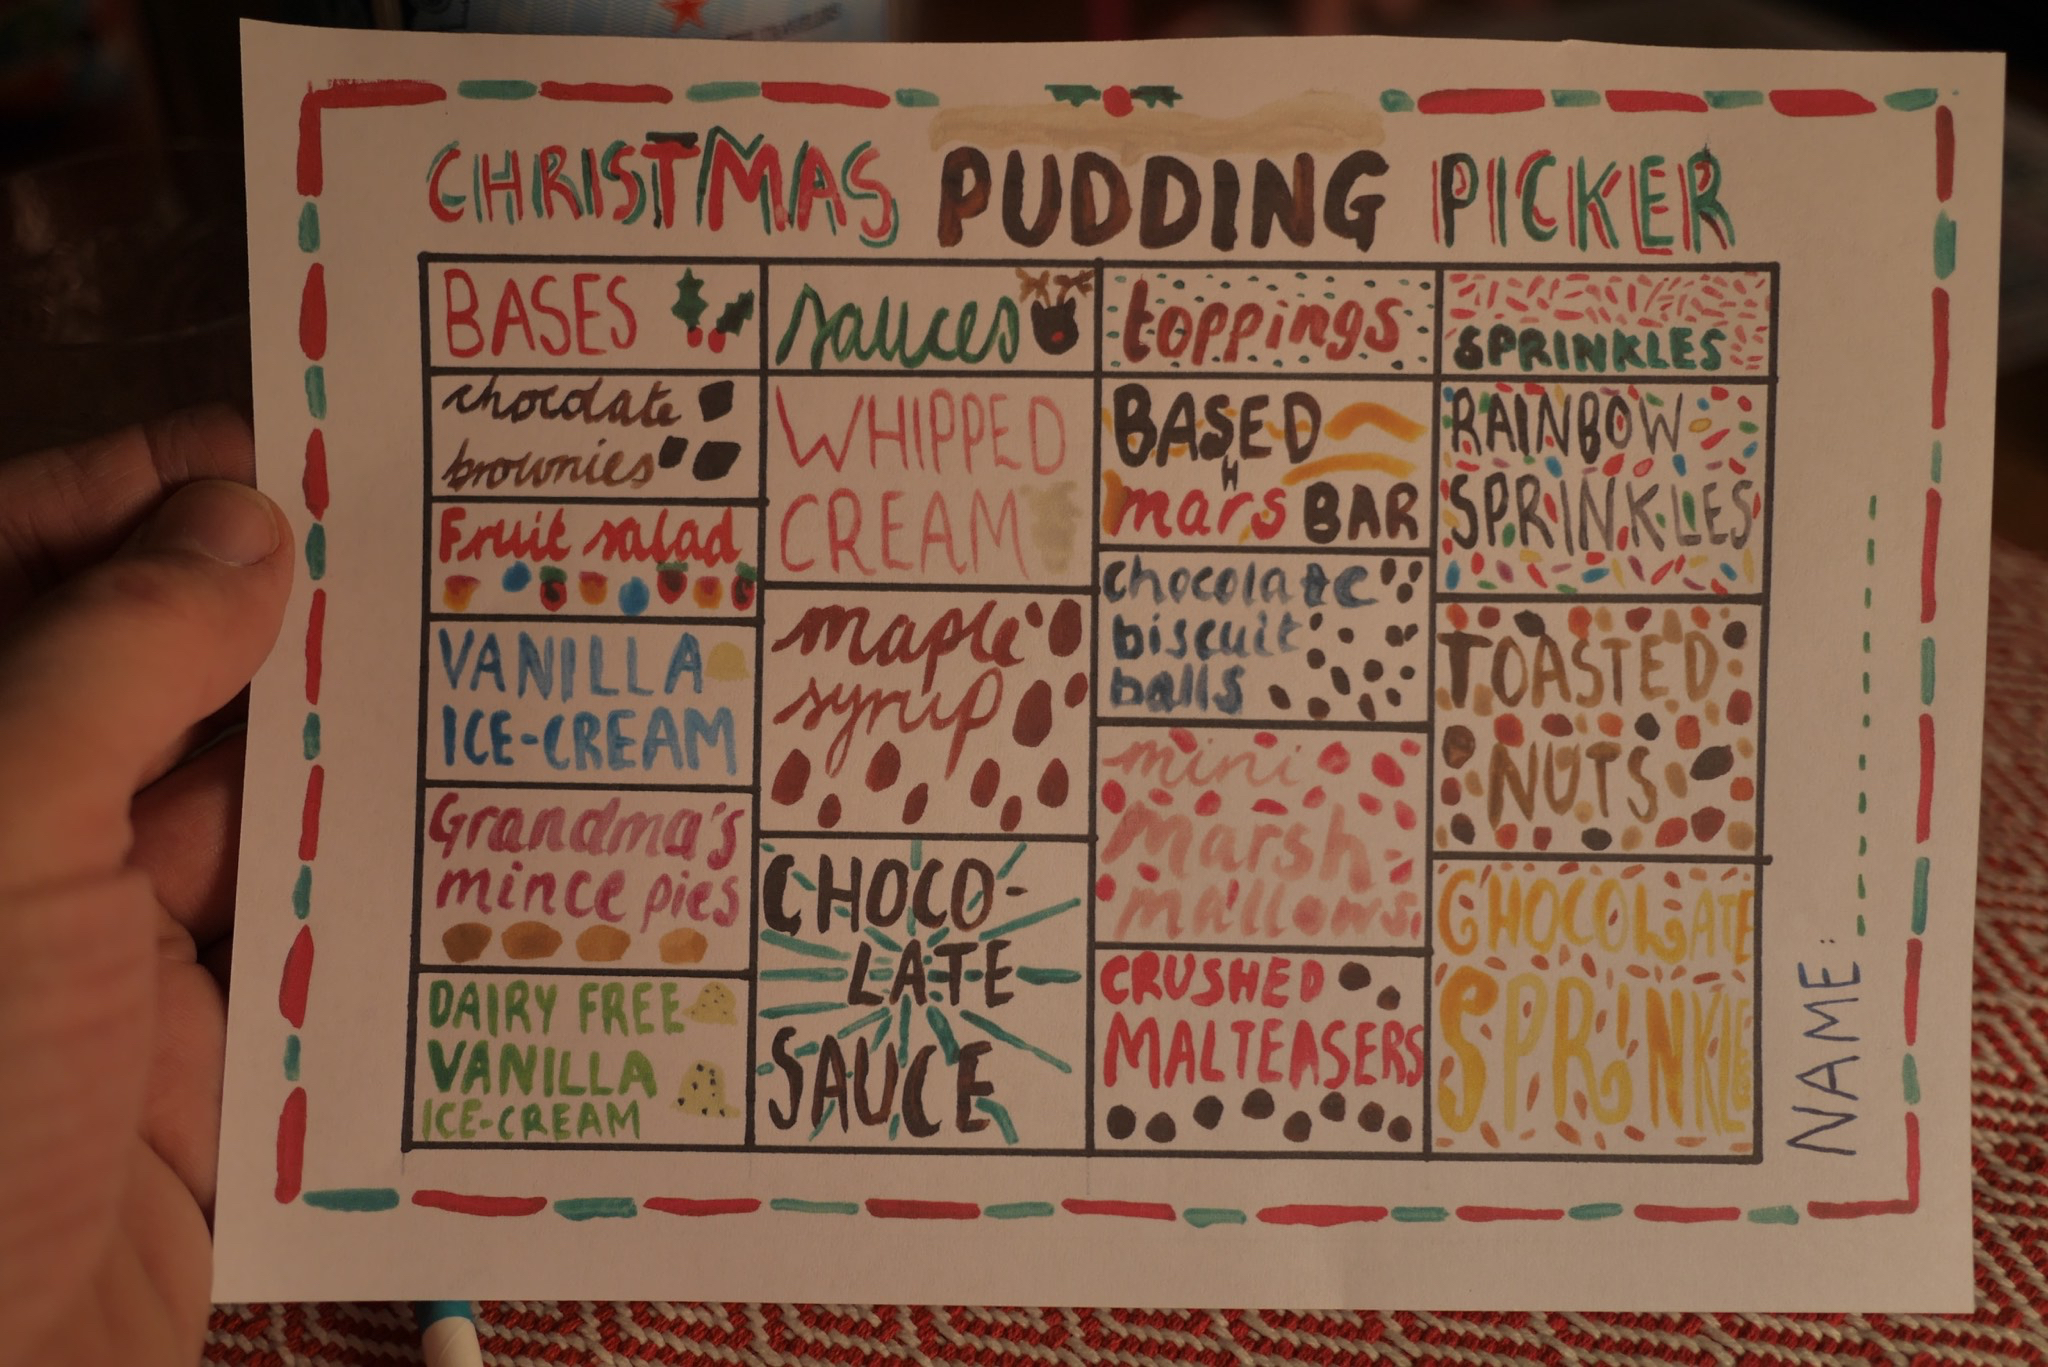 CHRISTMAS PUDDING PICKER
BASES
chocolate
brownies
Fruit salad
VANILLA
ICE-CREAM
Grandma's
mince pies
DAIRY FREE
VANILLA
ICE-CREAM
sauces
WHIPPED
CREAM
maple
syrup
CHOCO-
LATE
SAUCE
toppings
BASED
mars BAR
chocolate
biscuit
balls
mini
marsh
mallows
CRUSHED
MALTEASERS
SPRINKLES
RAINBOW
SPRINKLES
TOASTED
NUTS
CHOCOLATE
SPRINKLES
NAME: